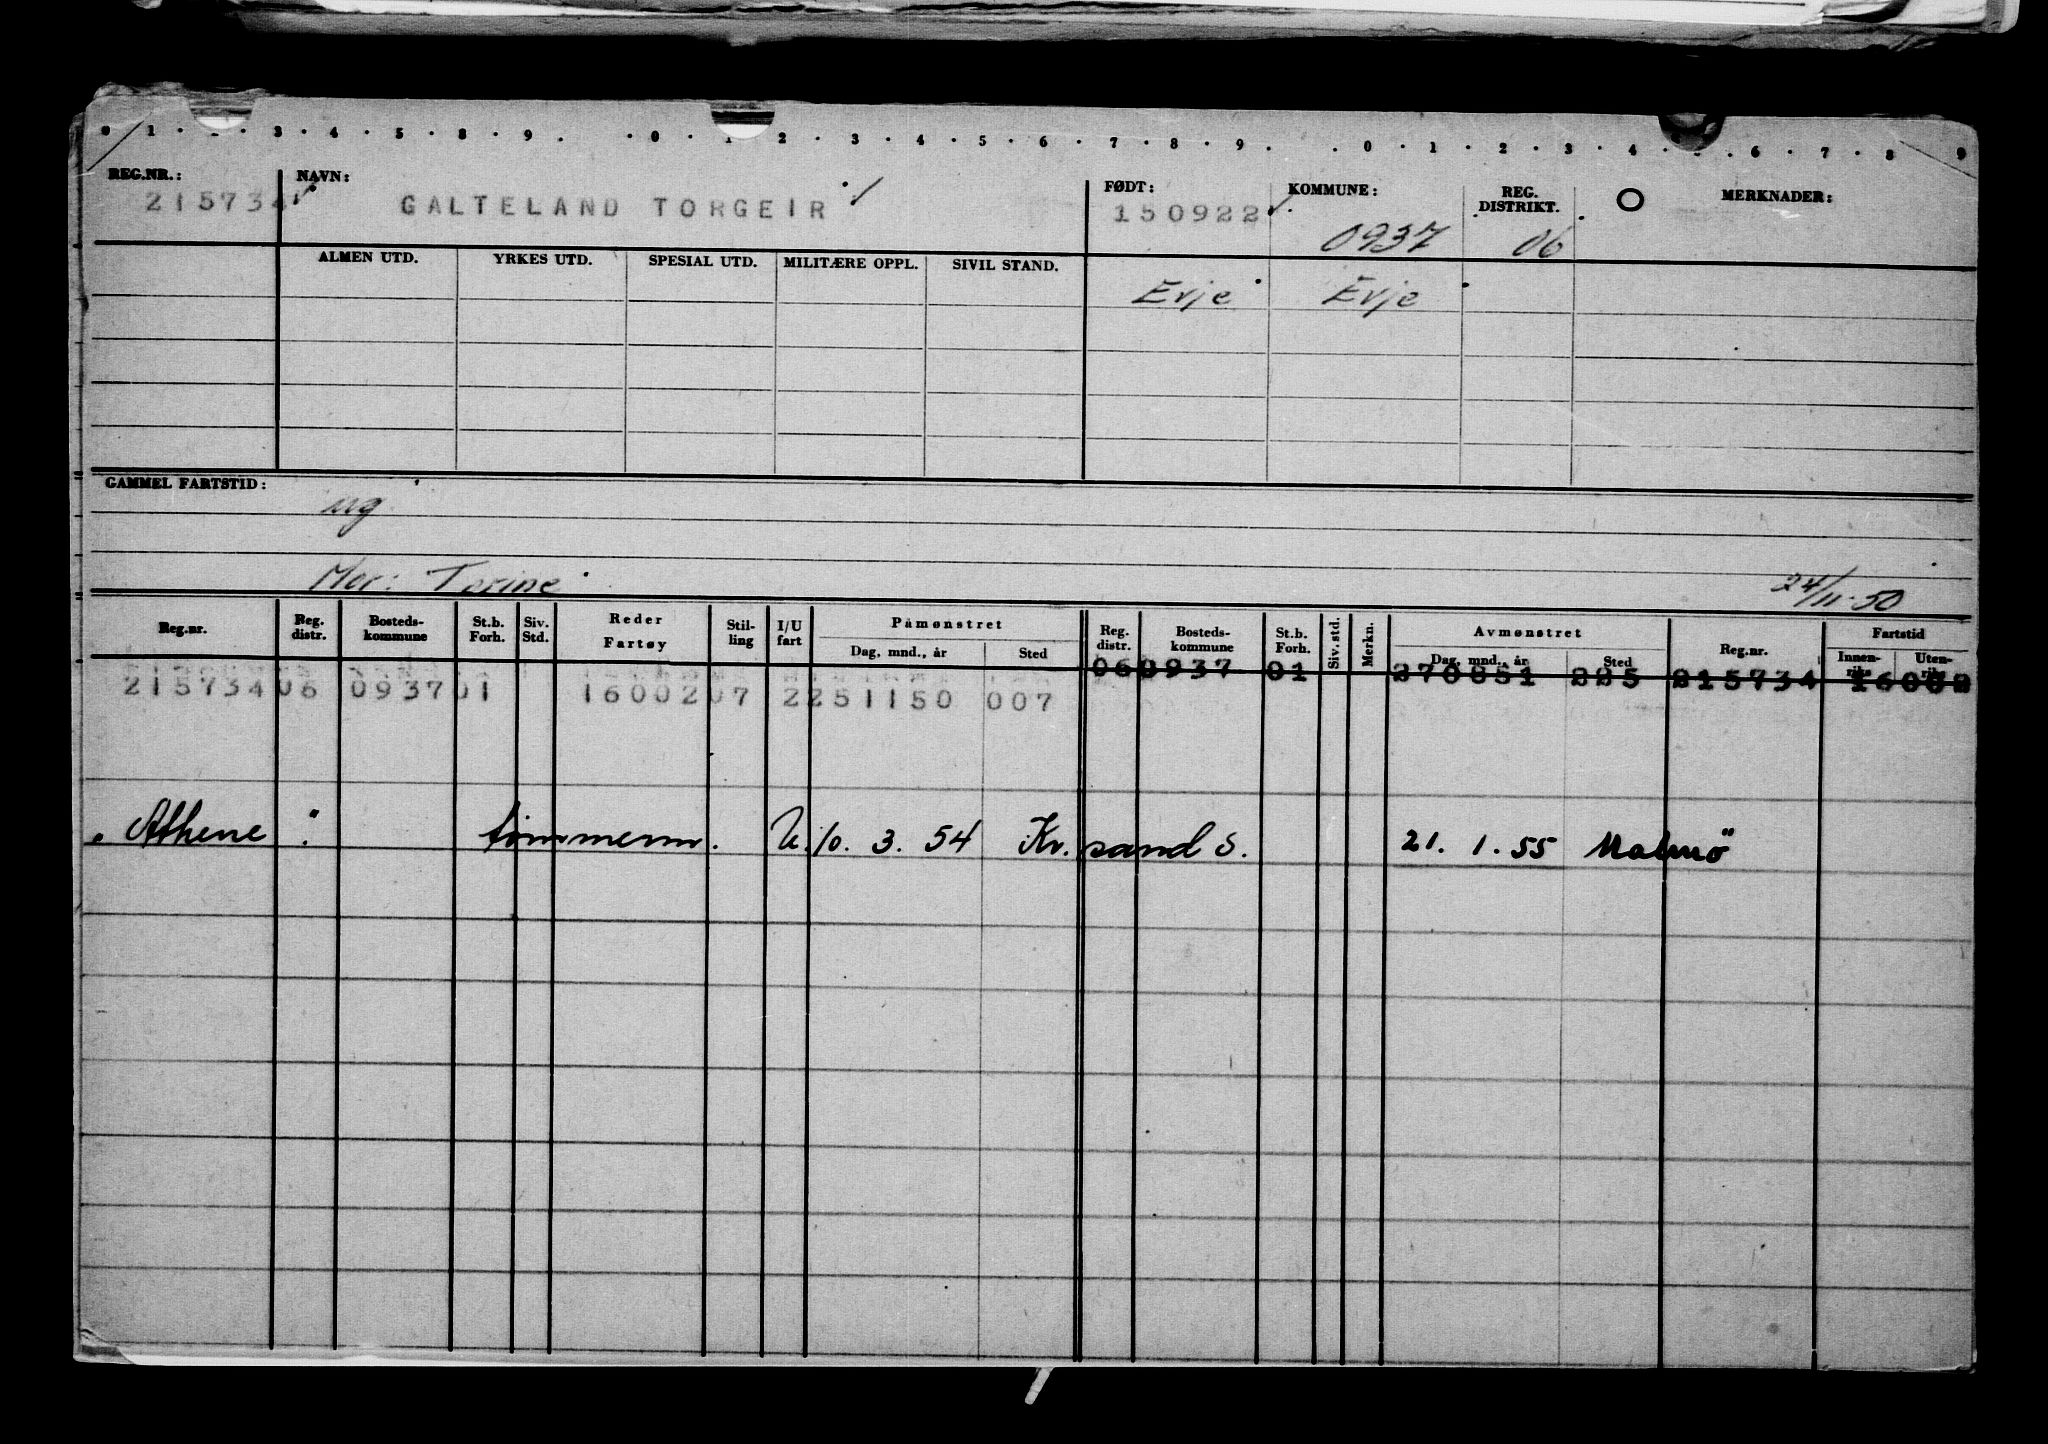 0 1 · - · 3 · 4 · 5 · 8 · 9 . · 0 · 1 2 · 3 · 4 · 5 · 6 · 7 · 8 · 9 . . 0 · 1 · 2 · 3 · 4 · - · 6 · 7 · 8 · 9
REG.NR.: NAVN: FØDT: KOMMUNE: REG. DISTRIKT. MERKNADER:
215734 GALTELAND TORGEIR 150922 0937 06
ALMEN UTD. YRKES UTD. SPESIAL UTD. MILITÆRE OPPL. SIVIL STAND.
Evje Evje
GAMMEL FARTSTID:
ug
Mor: Torine 24/11-50
Reg.nr. Reg. distr. Bosteds- kommune St.b. Forh. Siv. Std. Reder Fartøy Stil- ling I/U fart Påmønstret Dag, mnd., år Sted Reg. distr. Bosteds- kommune St.b. Forh. Siv. std. Merkn. Avmønstret Dag, mnd., år Sted Reg.nr. Fartstid Innen- riks Uten- riks
215734 06 0937 01 16002 07 2 251150 007 06 0937 01 270851 225 215734 16002
"Athene" tømmerm. U. 10. 3. 54 Kr. sand S. 21. 1. 55 Malmö